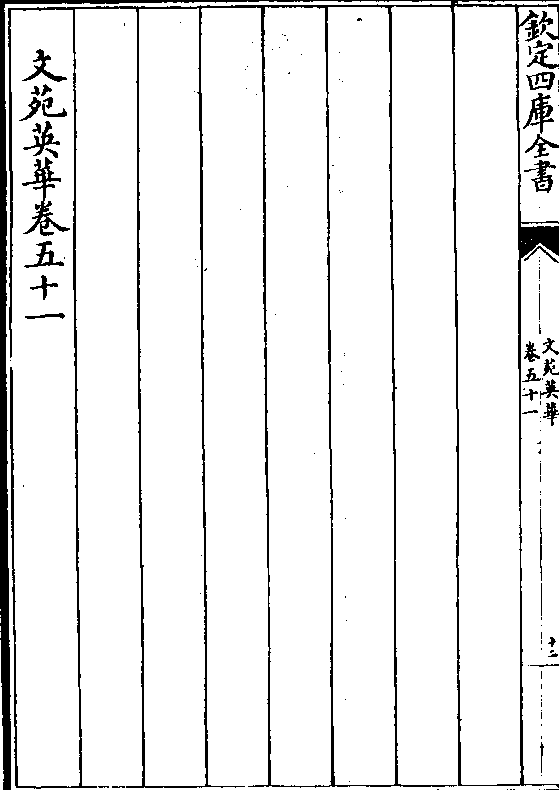 欽定四庫全書
文苑英華
卷五十一
十二
文苑英華卷五十一